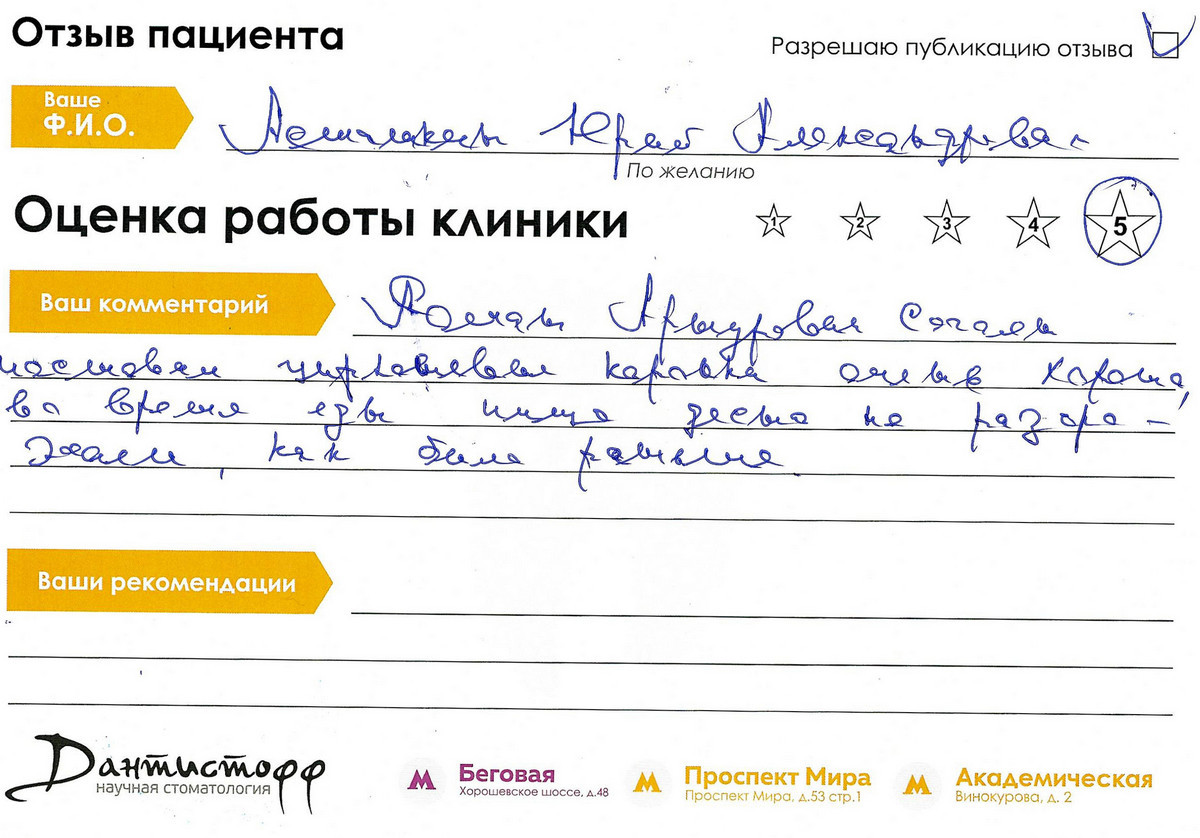 Отзыв пациента
Разрешаю публикацию отзыва
Ваше
Ф.И.О.
Юрий Александрови
По желанию
Оценка работы клиники
1 2 3 4 5
Ваш комментарий
Роман
циркониевая коронка очень хороша,
во время еды пища десна не раздра-
жали, как было раньше.
Ваши рекомендации
Дантистофф
научная стоматология
Беговая
Хорошевское шоссе, д.48
Проспект Мира
Проспект Мира, д.53 стр.1
Академическая
Винокурова, д. 2